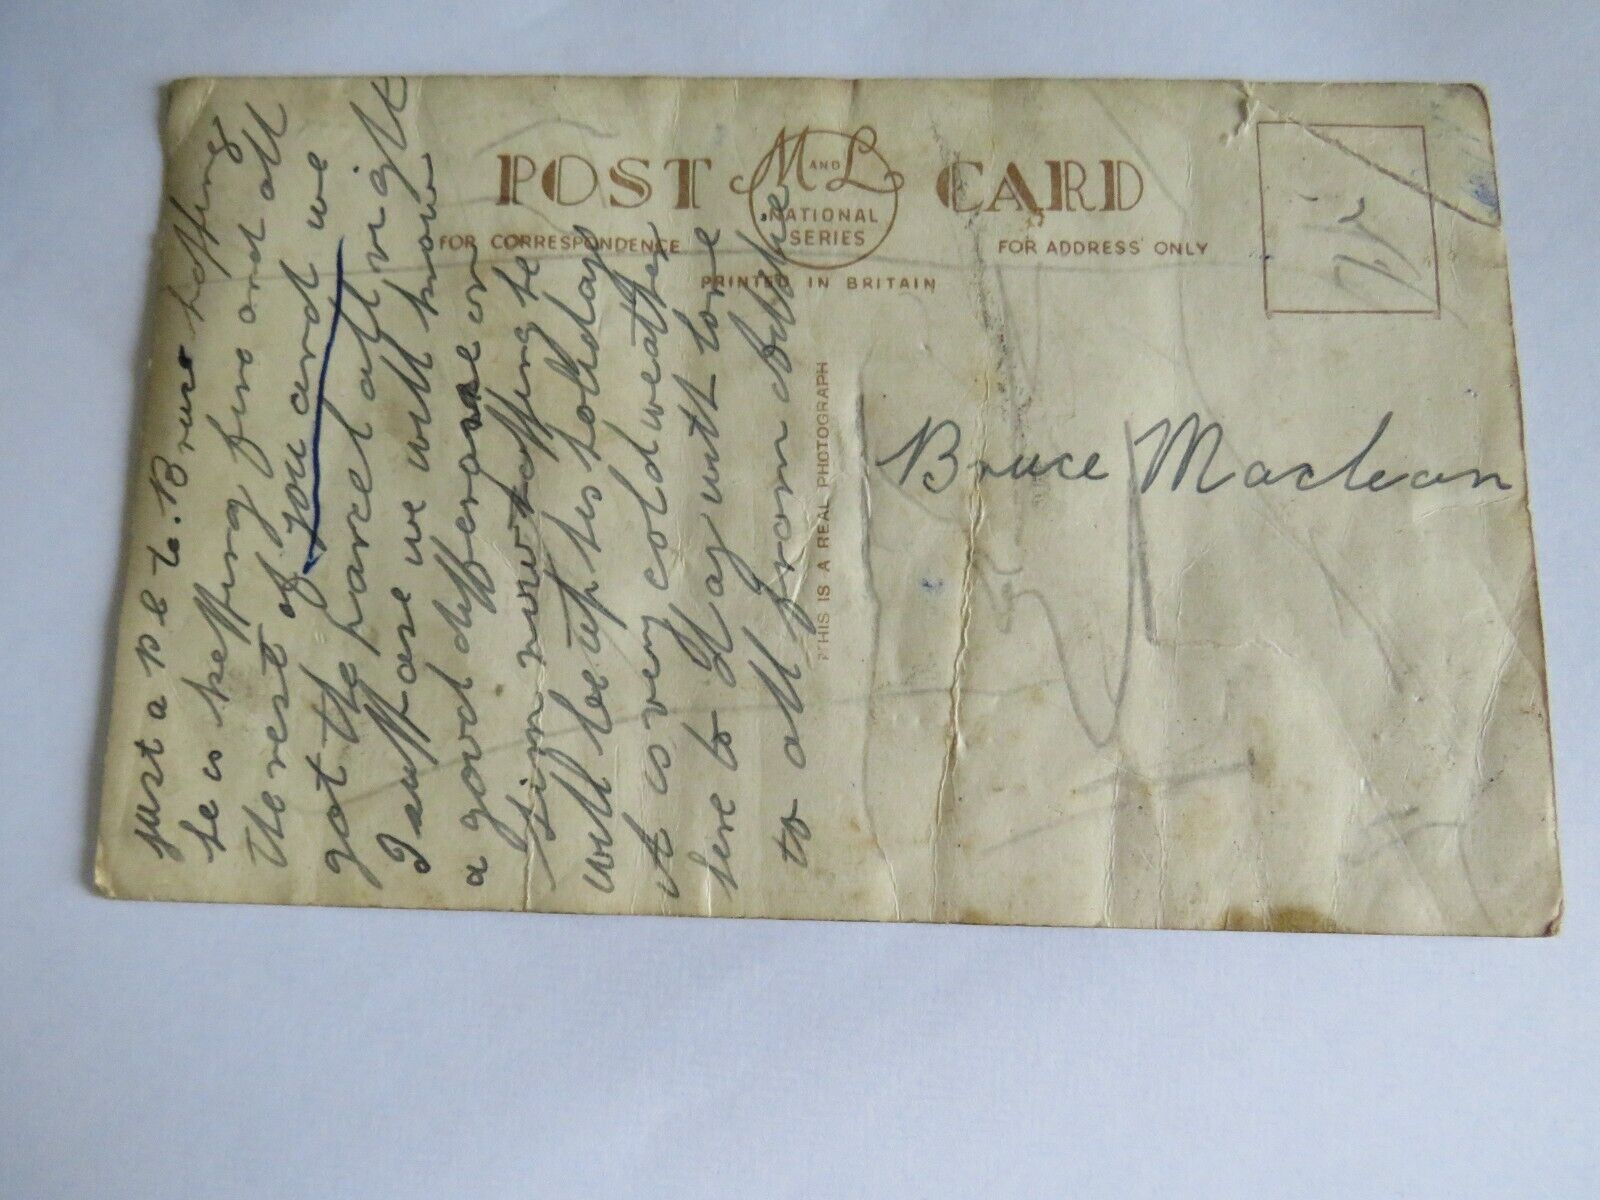 POST CARD
M AND L
NATIONAL
SERIES
FOR CORRESPONDENCE
FOR ADDRESS ONLY
PRINTED IN BRITAIN
THIS IS A REAL PHOTOGRAPH
just a p c to Bruce hopping
he is keepping fine and all
the rest of you and we
got the parcel all right
I suppose we will know
a good difference on
him now hopping he
will be up his hollidays
it is very cold weather
here to day with love
to all from
Bruce Maclean